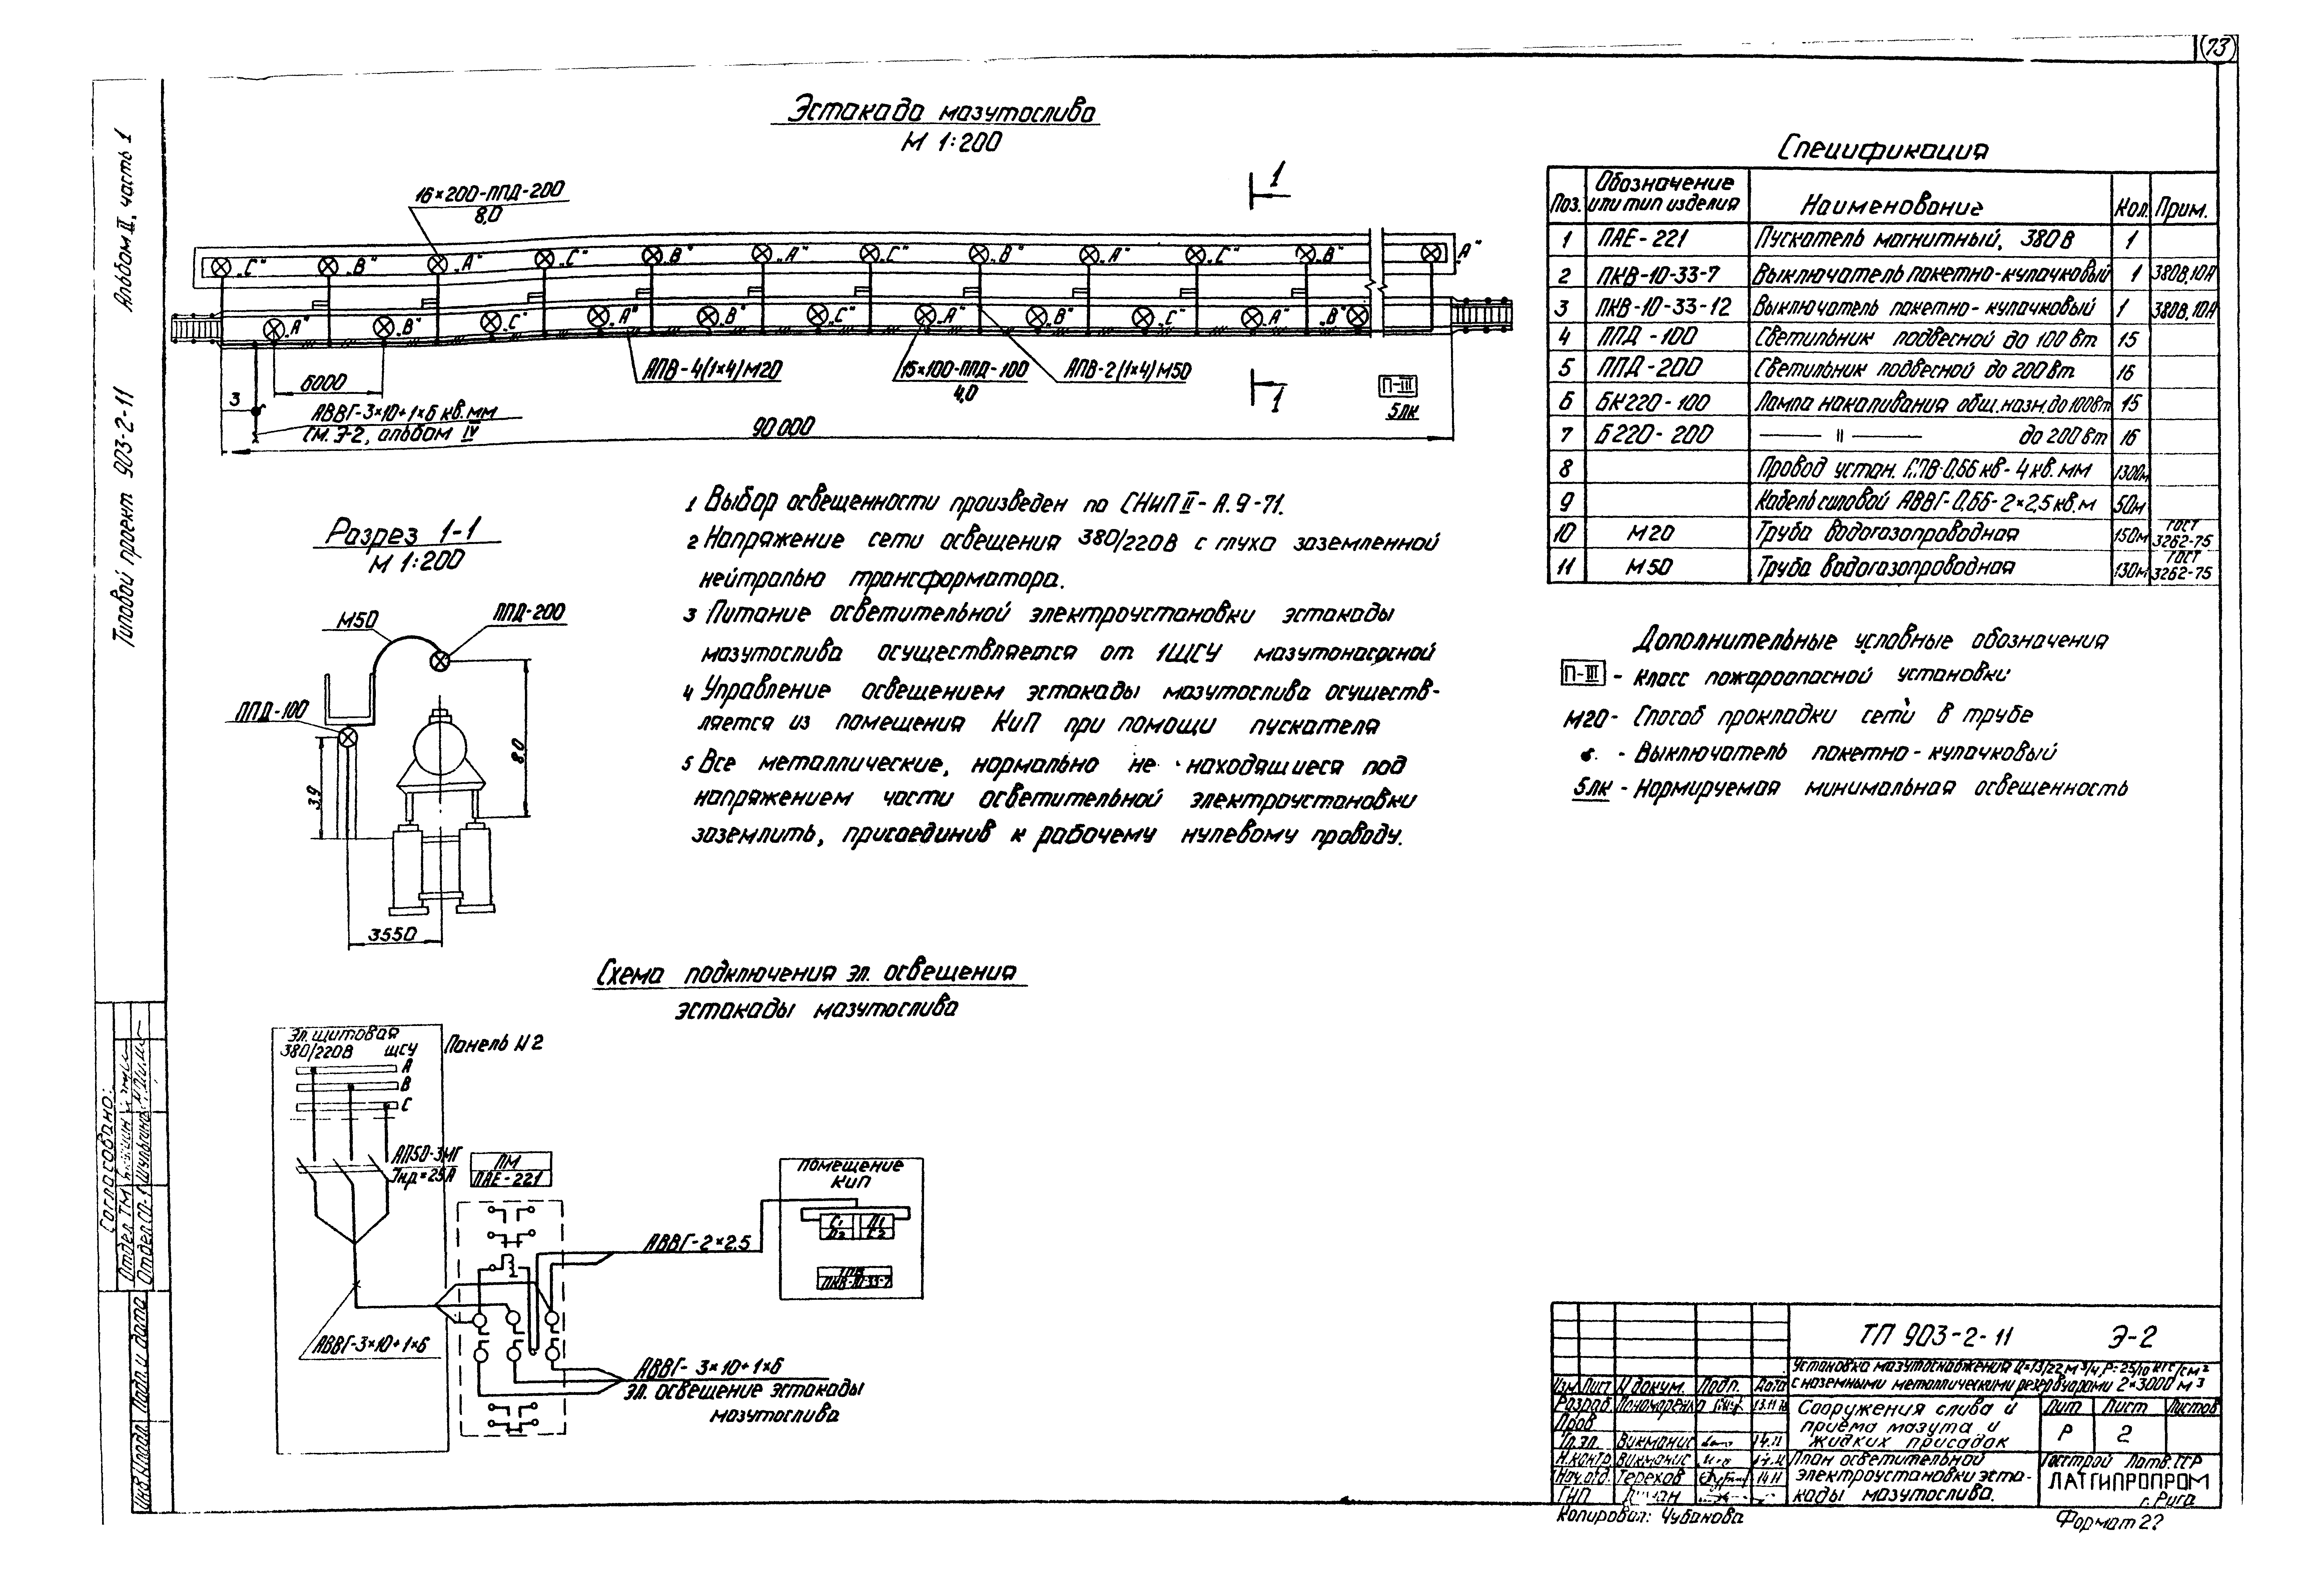 73
Альбом II, часть 1
Типовой проект 903-2-11
Эстакада мазутослива
М 1:200
16×200-ППД-200
8,0
1
„С“ „В“ „А“ „С“ „В“ „А“ „С“ „В“ „А“ „С“ „В“ „А“
„А“ „В“ „С“ „А“ „В“ „С“ „А“ „В“ „С“ „А“ „В“
АПВ-4(1×4)М20
15×100-ППД-100
4,0
АПВ-2(1×4)М50
П-III
5лк
1
6000
3
АВВГ-3×10+1×6 кв.мм
см. Э-2, альбом IV
90 000
Спецификация
Поз. Обозначение или тип изделия Наименование Кол. Прим.
1 ПАЕ-221 Пускатель магнитный, 380В 1
2 ПКВ-10-33-7 Выключатель пакетно-кулачковый 1 380В,10А
3 ПКВ-10-33-12 Выключатель пакетно-кулачковый 1 380В,10А
4 ППД-100 Светильник подвесной до 100 вт 15
5 ППД-200 Светильник подвесной до 200 вт 16
6 БК220-100 Лампа накаливания общ.назн.до 100вт 15
7 Б220-200 — " — до 200 вт 16
8 Провод устан. АПВ-0,66 кв-4 кв.мм 1300м
9 Кабель силовой АВВГ-0,66-2×2,5 кв.м 50м
10 М20 Труба водогазопроводная 150м ГОСТ 3262-75
11 М50 Труба водогазопроводная 130м ГОСТ 3262-75
Разрез 1-1
М 1:200
М50
ППД-200
ППД-100
3,9
8,0
3550
1 Выбор освещенности произведен по СНиП II-А.9-71.
2 Напряжение сети освещения 380/220В с глухо заземленной
нейтралью трансформатора.
3 Питание осветительной электроустановки эстакады
мазутослива осуществляется от 1ЩСУ мазутонасосной
4 Управление освещением эстакады мазутослива осуществ-
ляется из помещения КиП при помощи пускателя
5 Все металлические, нормально не находящиеся под
напряжением части осветительной электроустановки
заземлить, присоединив к рабочему нулевому проводу.
Дополнительные условные обозначения
П-III - Класс пожароопасной установки
М20- Способ прокладки сети в трубе
- Выключатель пакетно-кулачковый
5лк - Нормируемая минимальная освещенность
Схема подключения эл. освещения
эстакады мазутослива
Эл. щитовая
380/220В ЩСУ
Панель N2
А
В
С
АП50-3МГ
Iнр=25А
ПМ
ПАЕ-221
АВВГ-3×10+1×6
АВВГ-2×2,5
Помещение
КиП
С1 Л1
Л2 С2
ПКВ-10-33-7
АВВГ-3×10+1×6
эл. освещение эстакады
мазутослива
Согласовано:
Отдел ТМ
Отдел СО-1 Шульгина
Инв.N подл. Подп. и дата
ТП 903-2-11 Э-2
Установка мазутоснабжения Q=13/22 м³/ч, Р=25/10 кгс/см²
с наземными металлическими резервуарами 2×3000 м³
Изм Лист N докум. Подп. Дата
Разраб. Пономаренко 13.11.76
Пров
Гл.эл. Викманис 14.11
Н.контр. Викманис 14.11
Нач.отд. Терехов 14.11
ГИП
Сооружения слива и
приема мазута и
жидких присадок
Лит Лист Листов
Р 2
План осветительной
электроустановки эста-
кады мазутослива.
Госстрой Латв.ССР
ЛАТГИПРОПРОМ
г.Рига
Копировал: Чубанова
Формат 22